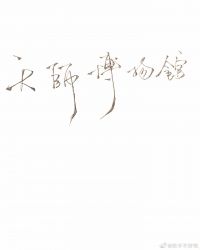 天師博物館